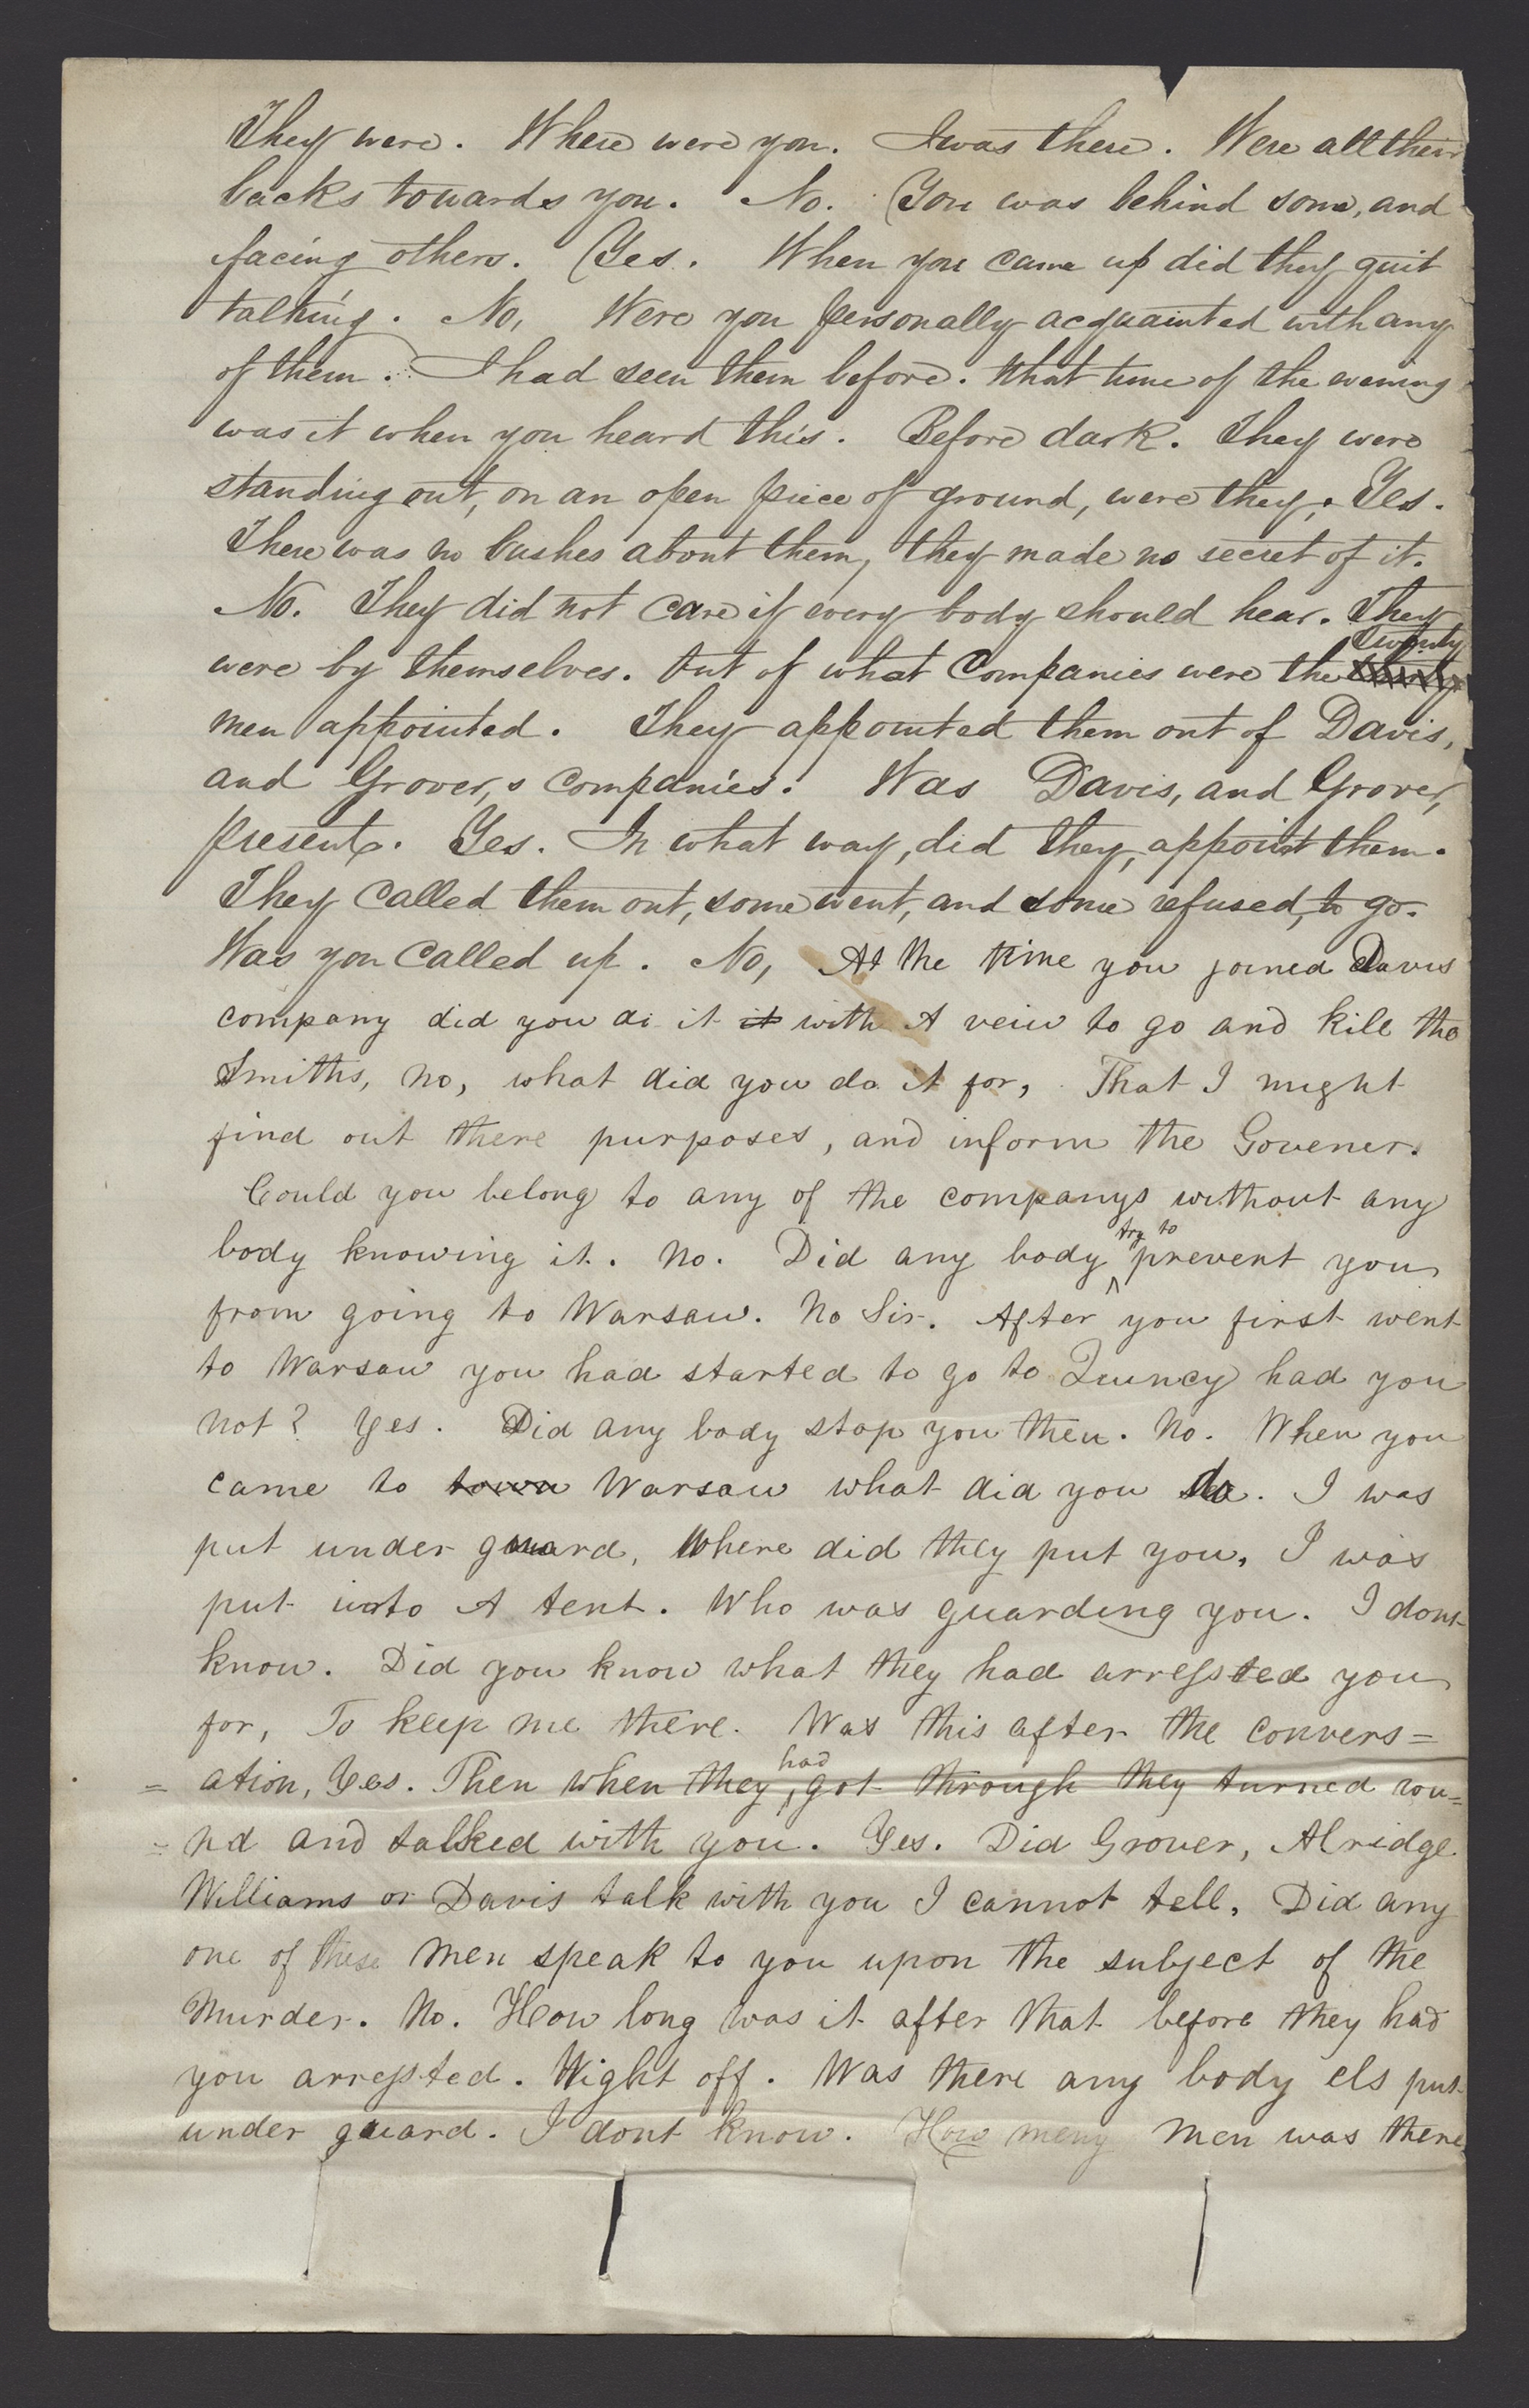 They were. Where were you. I was there. Were all their
backs towards you. No. You was behind some, and
facing others. Yes. When you came up did they quit
talking. No, Were you personally acquainted with any
of them. I had seen them before. What time of the evening
was it when you heard this. Before dark. They were
standing out, on an open piece of ground, were they. Yes.
There was no bushes about them, they made no secret of it.
No. They did not care if every body should hear. They
Twenty
were by themselves. Out of what Companies were the thirty
men appointed. They appointed them out of Davis,
and Grover,s Companies. Was Davis, and Grover,
present. Yes. In what way, did they, appoint them.
They called them out, some went, and some refused, to go.
Was you called up. No, At the time you joined Davis
company did you do it it with A veiw to go and kill the
Smiths, no, what did you do it for, That I might
find out there purposes, and inform the Govener.
Could you belong to any of the companys without any
try to
body knowing it. No. Did any body ^ prevent you
from going to Warsaw. No Sir. After you first went
to Warsaw you had started to go to Quincy had you
not? Yes. Did any body stop you then. No. When you
came to town Warsaw what did you do. I was
put under guard, Where did they put you, I was
put into A tent. Who was guarding you. I dont
know. Did you know what they had arrested you
for, To keep me there. Was this after the convers=
had
= ation, Yes. Then when they ^ got through they turned rou=
= nd and talked with you. Yes. Did Grover, Alridge
Williams or Davis talk with you I cannot tell, Did any
one of these men speak to you upon the subject of the
Murder. No. How long was it after that before they had
you arrested. Wright off. Was there any body els put
under guard. I dont know. How meny men was there